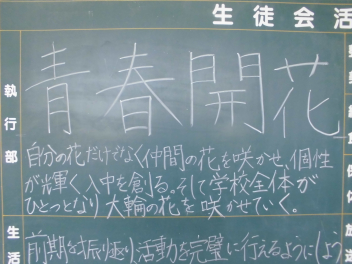 生徒会活
執行部
青春開花
自分の花だけでなく仲間の花を咲かせ、個性
が輝く入中を創る。そして学校全体が
ひとつとなり大輪の花を咲かせていく。
生活
前期を振り返り活動を完璧に行えるようにしよう